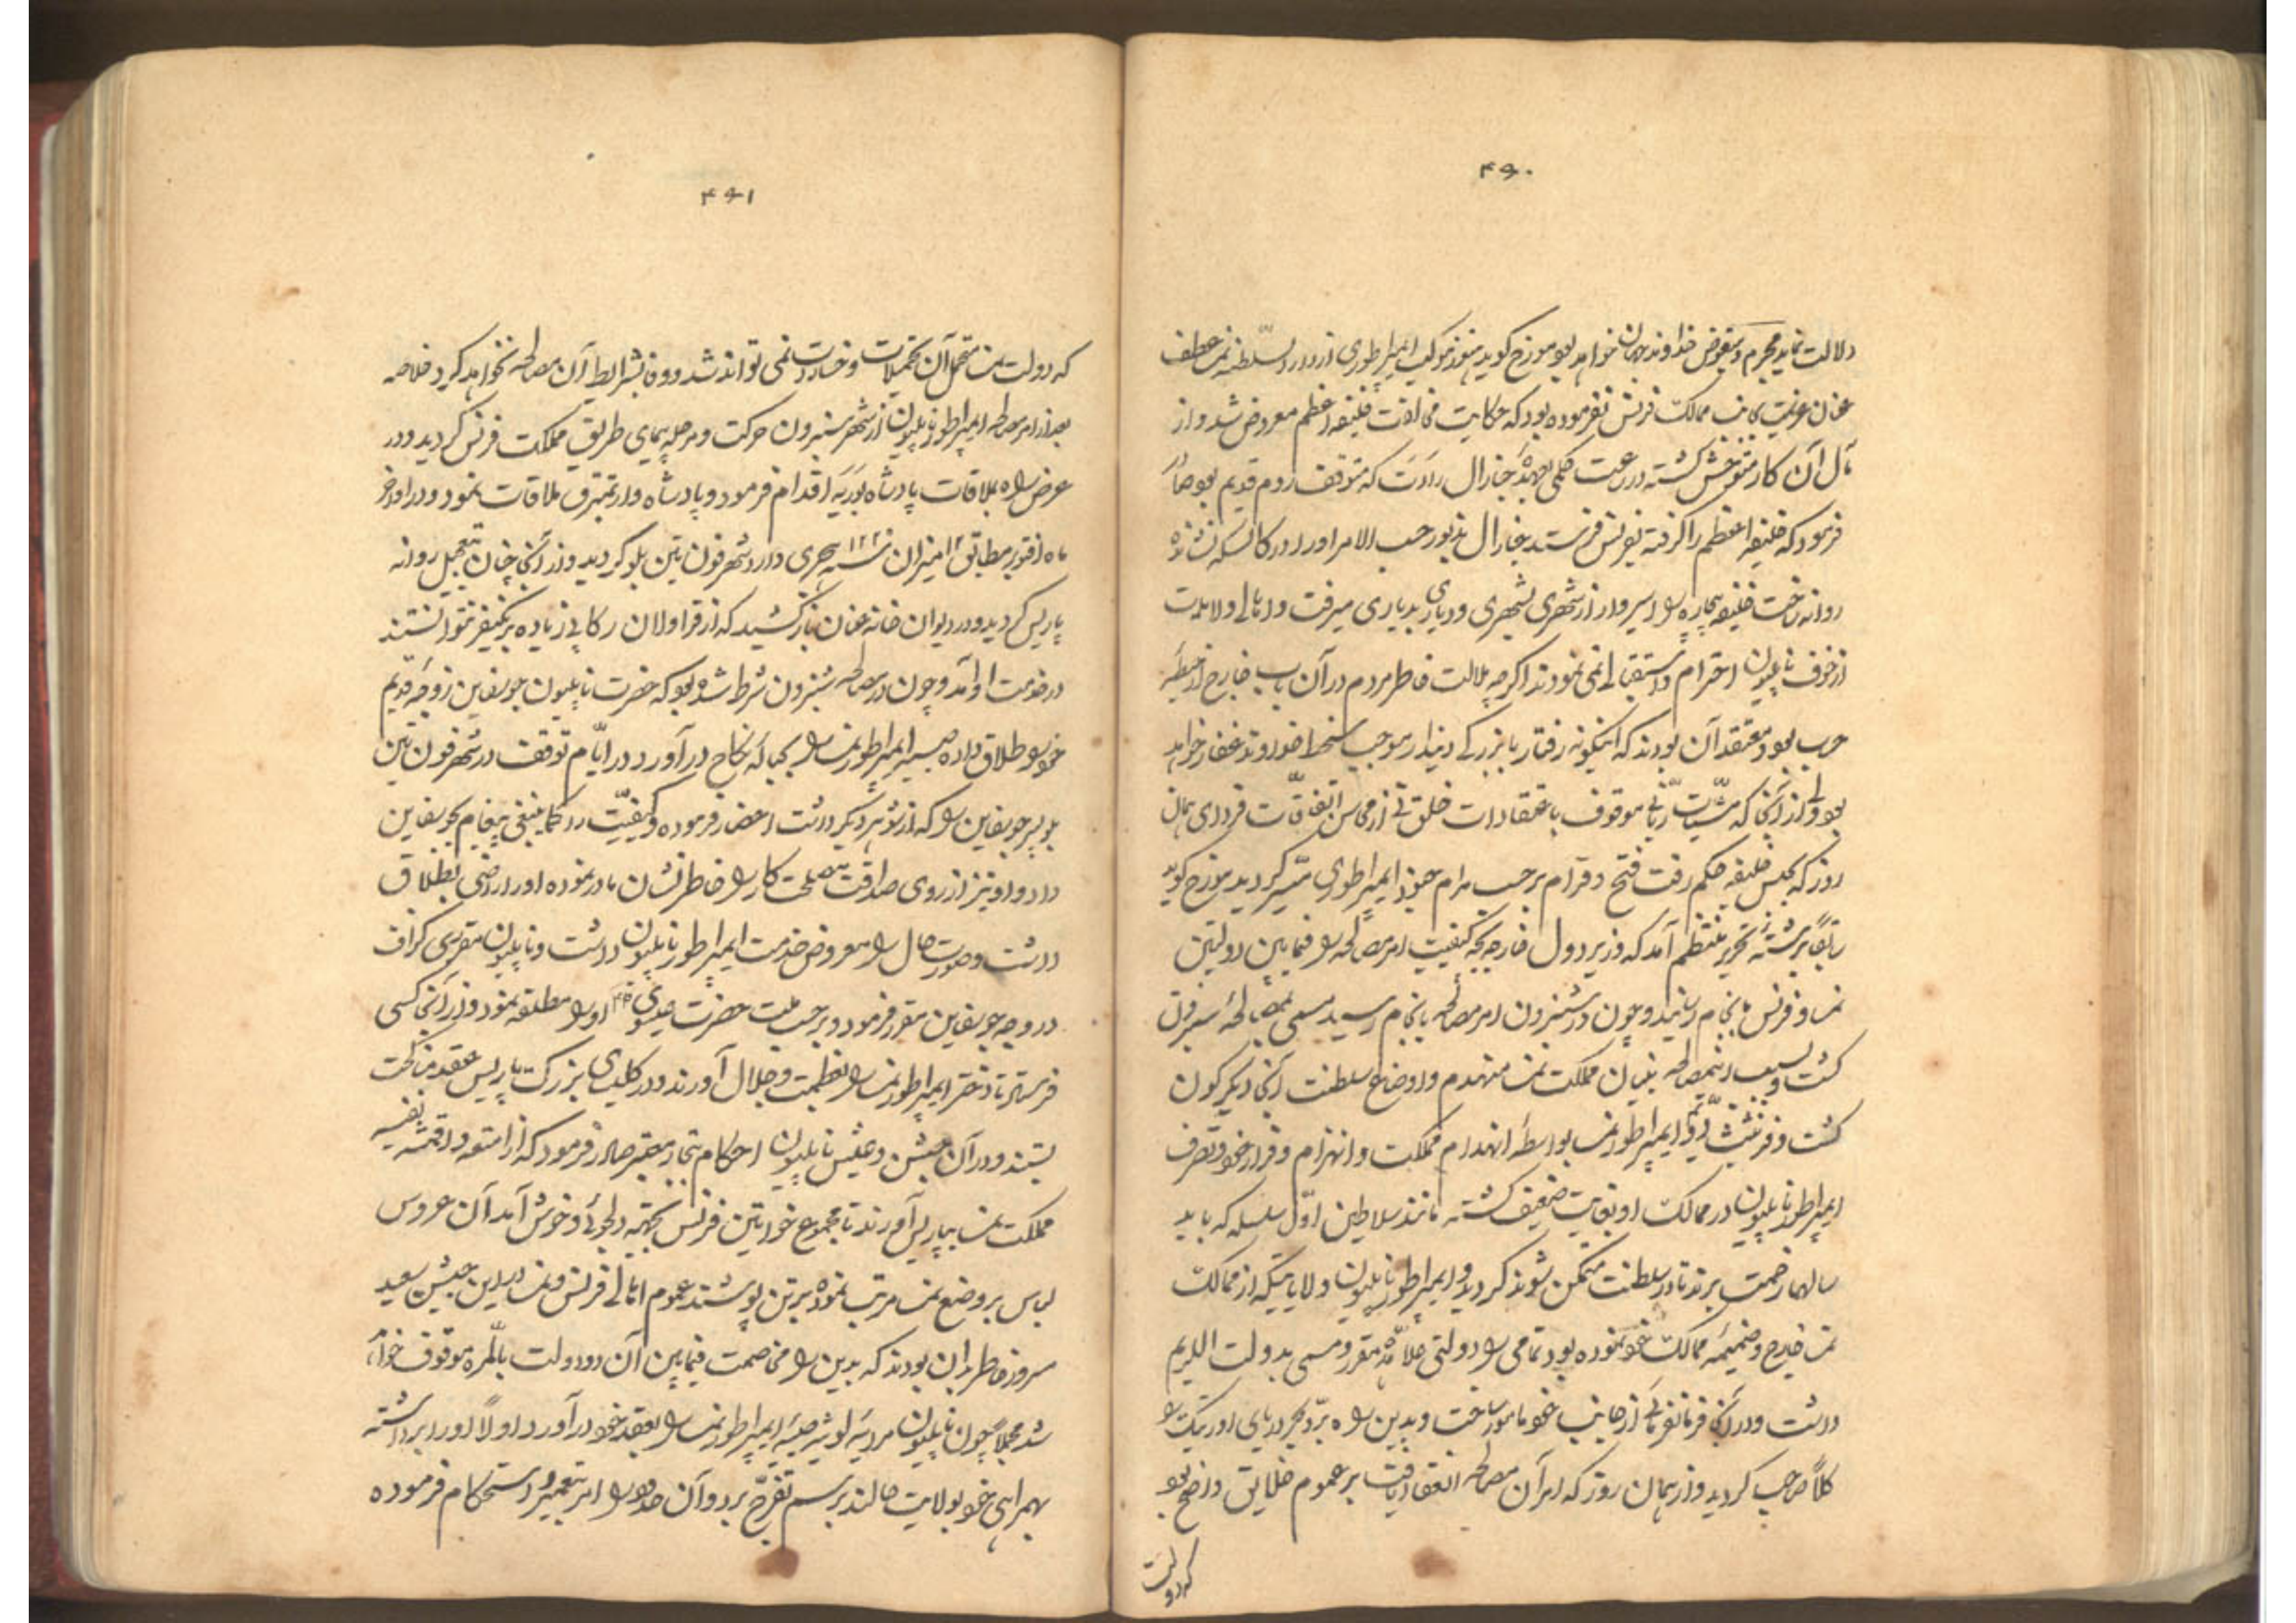 ۴۹۰
دلالت نماید مجرم و مبغوض خداوند جهان خواهد بود مورخ گوید هنوز موکب ایمپراطوری از دار السلطنه نمسه عطف
عنان عزیمت بجانب ممالک فرنس نفرموده بود که حکایت مخالفت خلیفه اعظم معروض شد و از
مآل آن کار متوحش گشته در رعت حکمی بعهده جنارال رادت که متوقف روم قدیم بود صادر
فرمود که خلیفه اعظم را گرفته بفرنس فرستد جنارال مزبور حسب الامر او را در کالسکه نشانده
روانه ساخت خلیفه بیچاره را اسیروار از شهری بشهری و دیاری بدیاری میرفت و اهالی ولایات
از خوف ناپلیون احترام و استقبالی نمی‌نمودند اگرچه ملالت خاطر مردم در آن باب خارج از حیطه
حساب بود و معتقد آن بودند که اینگونه رفتار با بزرگ دیندار موجب سخط خداوند غفار خواهد
بود ولی از آنجا که مشیت ربانی موقوف باعتقادات خلق نی از محاسن اتفاقات فردای همان
روز که بحبس خلیفه حکم رفت فتح وقرام بر حسب مرام جنود ایمپراطوری میسر گردید مورخ گوید
سابقاً برشته تحریر منتظم آمد که وزیر دول خارجه کیفیت امر مصالحه را فیمابین دولتین
نمسه و فرنس بانجام رسانید و چون در شنبرون امر مصالحه بانجام رسید مسمی بمصالحه شنبرون
گشت و بسبب این مصالحه بنیان مملکت نمسه منهدم و اوضاع سلطنت آنجا دیگرگون
گشت و فرنشث دویم ایمپراطور نمسه بواسطه انهدام مملکت و انهزام و فرار خود و تصرف
ایمپراطور ناپلیون در ممالک او بغایت ضعیف گشته مانند سلاطین اول سلسله که باید
سالها زحمت برند تا در سلطنت متمکن شوند گردید و ایمپراطور ناپلیون ولایاتیکه از ممالک
نمسه خارج و ضمیمه ممالک خود نموده بود تمامی را دولتی علاحده مقرر و مسمی بدولت اللریم
داشت و در آنجا فرمانفرمائی از جانب خود مامور ساخت و بدین راه بر و بحر دریای ادریتک را
کلاً صاحب گردید و از همان روز که امر آن مصالحه انعقاد یافت بر عموم خلایق واضح بود
که دولت
۴۹۱
که دولت نمسه متحمل آن تحمیلات و خسارت نمی‌تواند شد و وفا بشرایط آن مصالحه نخواهد کرد خلاصه
بعد از امر مصالحه ایمپراطور ناپلیون از شهر شنبرون حرکت و مرحله پیمای طریق مملکت فرنس گردید و در
عرض راه بملاقات پادشاه بوریه اقدام فرمود و پادشاه وارتمبرق ملاقات نمود و در اواخر
ماه اقتوبر مطابق ۱۲ میزان سنه ۱۲۲ هجری وارد شهر فون تین بلو گردید و از آنجا چنان بتعجیل روانه
پاریس گردید و در دیوان خانه عنان باز کشید که از قراولان رکابی زیاده بر یکنفر نتوانستند
در خدمت او آمد و چون در مصالحه شنبرون شرط شده بود که حضرت ناپلیون جوزفاین زوجه قدیم
خود را طلاق داده صبیه ایمپراطور نمسه را بحباله نکاح در آورد در ایام توقف در شهر فون تین
بلو پسر جوزفاین را که از شوهر دیگر داشت احضار فرموده و کیفیت را کماینبغی پیغام بجوزفاین
داد و او نیز از روی صداقت مصلحت کار را خاطرنشان مادر نموده او را راضی بطلاق
داشت و صورت حال را معروض خدمت ایمپراطور ناپلیون داشت و ناپلیون مقرری گزاف
در وجه جوزفاین مقرر فرمود و بر حسب ملت حضرت عیسوی او را مطلقه نمود و از آنجا کسی
فرستاد تا دختر ایمپراطور نمسه را بعظمت و جلال آوردند و در کلیسای بزرگ پاریس عقد مناکحت
بستند و در آن جشن و عیش ناپلیون احکام بتجار معتبر صادر فرمود که از امتعه و اقمشه نفیسه
مملکت نمسه بپاریس آورند تا مجموع خواتین فرنس بجهت دلجوئی و خوش آمد آن عروس
لباس بر وضع نمسه مرتب نموده بر تن پوشند عموم اهالی فرنس و نمسه در این جشن سعید
مسرور خاطر بدان بودند که بدین راه مخاصمت فیمابین آن دو دولت بالمره موقوف خواهد
شد مجملاً چون ناپلیون مریه لوئیز صبیه ایمپراطور نمسه را بعقد خود در آورد اولاً او را برداشته
بهمراهی خود بولایت هالند برسم تفرج برد و آن حدود را امر بتعمیر و استحکام فرموده